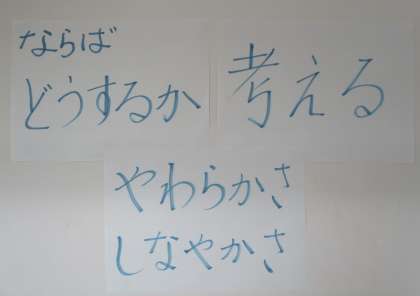 ならば
どうするか
考える
やわらかさ
しなやかさ